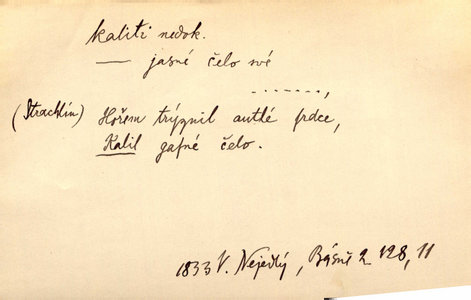 kaliti nedok.
— jasné čelo své
. . . . . . . ,
(Strachlín) Hořem trýznil autlé srdce,
Kalil gasné čelo.
1833 V. Nejedlý, Básně 2 128, 11